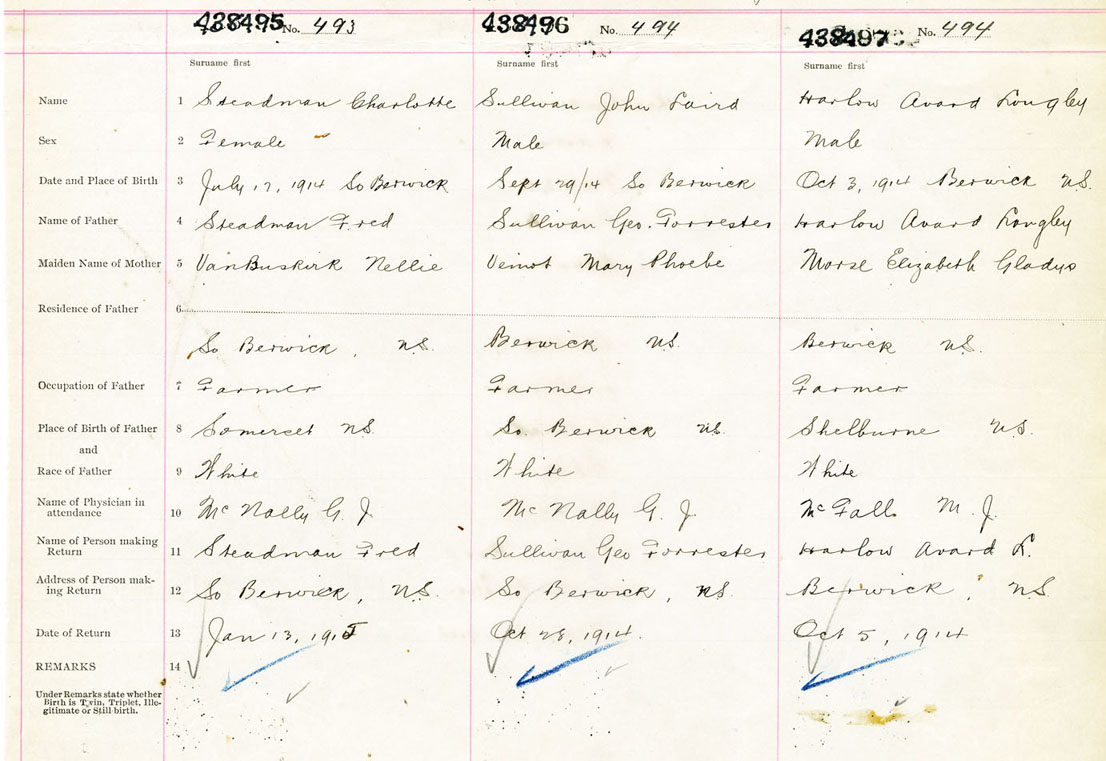 438495 No. 493 438496 No. 494 438497 No. 494
Surname first Surname first Surname first
Name 1 Steadman Charlotte Sullivan John Laird Harlow Avard Longley
Sex 2 Female Male Male
Date and Place of Birth 3 July 17, 1914 So Berwick Sept 29/14 So Berwick Oct 3, 1914 Berwick N.S.
Name of Father 4 Steadman Fred Sullivan Geo. Forrester Harlow Avard Longley
Maiden Name of Mother 5 VanBuskirk Nellie Veinot Mary Phoebe Morse Elizabeth Gladys
Residence of Father 6
So Berwick, N.S. Berwick N.S. Berwick N.S.
Occupation of Father 7 Farmer Farmer Farmer
Place of Birth of Father 8 Somerset N.S. So. Berwick N.S. Shelburne N.S.
and
Race of Father 9 White White White
Name of Physician in
attendance 10 McNally G. J. McNally G. J. McFall M. J.
Name of Person making
Return 11 Steadman Fred Sullivan Geo Forrester Harlow Avard L.
Address of Person mak-
ing Return 12 So Berwick, N.S. So Berwick, N.S. Berwick, N.S.
Date of Return 13 Jan 13, 1915 Oct 28, 1914. Oct 5, 1914
REMARKS 14
Under Remarks state whether
Birth is Twin, Triplet, Ille-
gitimate or Still birth.